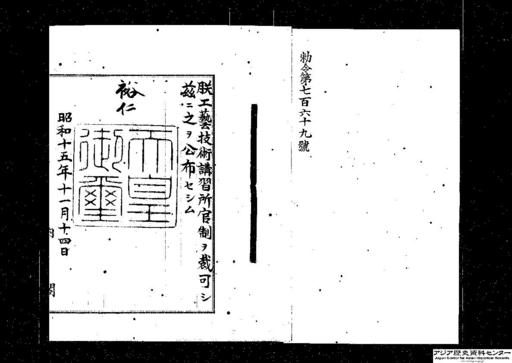 勅令第七百六十九號
朕工藝技術講習所官制ヲ裁可シ
茲ニ之ヲ公布セシム
裕仁
天皇
御璽
昭和十五年十一月十四日
内閣
アジア歴史資料センター
Japan Center for Asian Historical Records